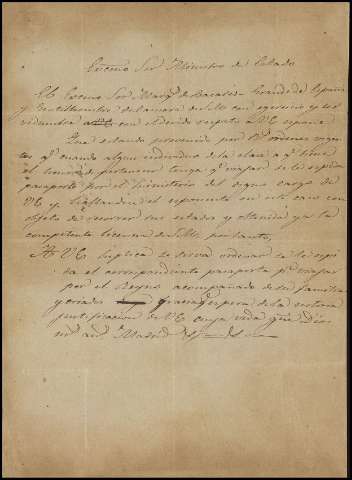 Excmo Sor Ministro de Estado
El Excmo Sor Marqs de Grande de España
y Gentilhombre de Camara de S.M. con egercicio y ser
vidumbre con el devido respeto a V.E. espone
Que estando prevenido por Rs ordenes vigen
tes qe cuando algun individuo de la clase a qe tiene
el honor de pertenecer tenga qe viajar se le espida
pasaporte por el Ministerio del digno cargo de
V.E. y hallandose el esponente en este caso con
objeto de recorrer sus estados y obtenida ya la
competente licencia de S.M. por tanto,
A V.E. suplica se sirva ordenar se le espi
da el correspondiente pasaporte pa viajar
por el Reyno acompañado de su familia
y criados gracia qe espera de la notoria
justificacion de V.E. cuya vida gue Dios
ms as Madrid